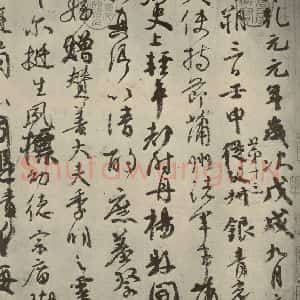 乾元元年歲次戊戌九月
朔三日壬申第十三叔銀青光
夫使持節蒲州諸軍事
史上輕車都尉丹楊縣開
真卿以清酌庶羞祭
姪贈贊善大夫季明之靈
爾挺生夙標幼德宗廟瑚
Shufawang.CN